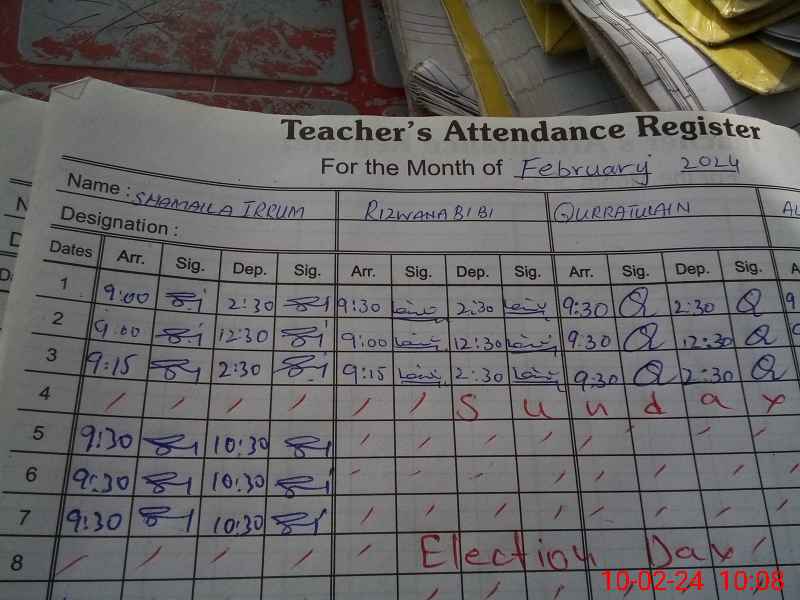 Teacher's Attendance Register
For the Month of February 2024
Name : SHAMAILA IRRUM RIZWANA BIBI QURRATULAIN
Designation :
Dates Arr. Sig. Dep. Sig. Arr. Sig. Dep. Sig. Arr. Sig. Dep. Sig.
1 9:00 2:30 9:30 2:30 9:30 2:30
2 9:00 12:30 9:00 12:30 9:30 12:30
3 9:15 2:30 9:15 2:30 9:30 2:30
4 Sunday
5 9:30 10:30
6 9:30 10:30
7 9:30 10:30
8 Election Day
10-02-24 10:08